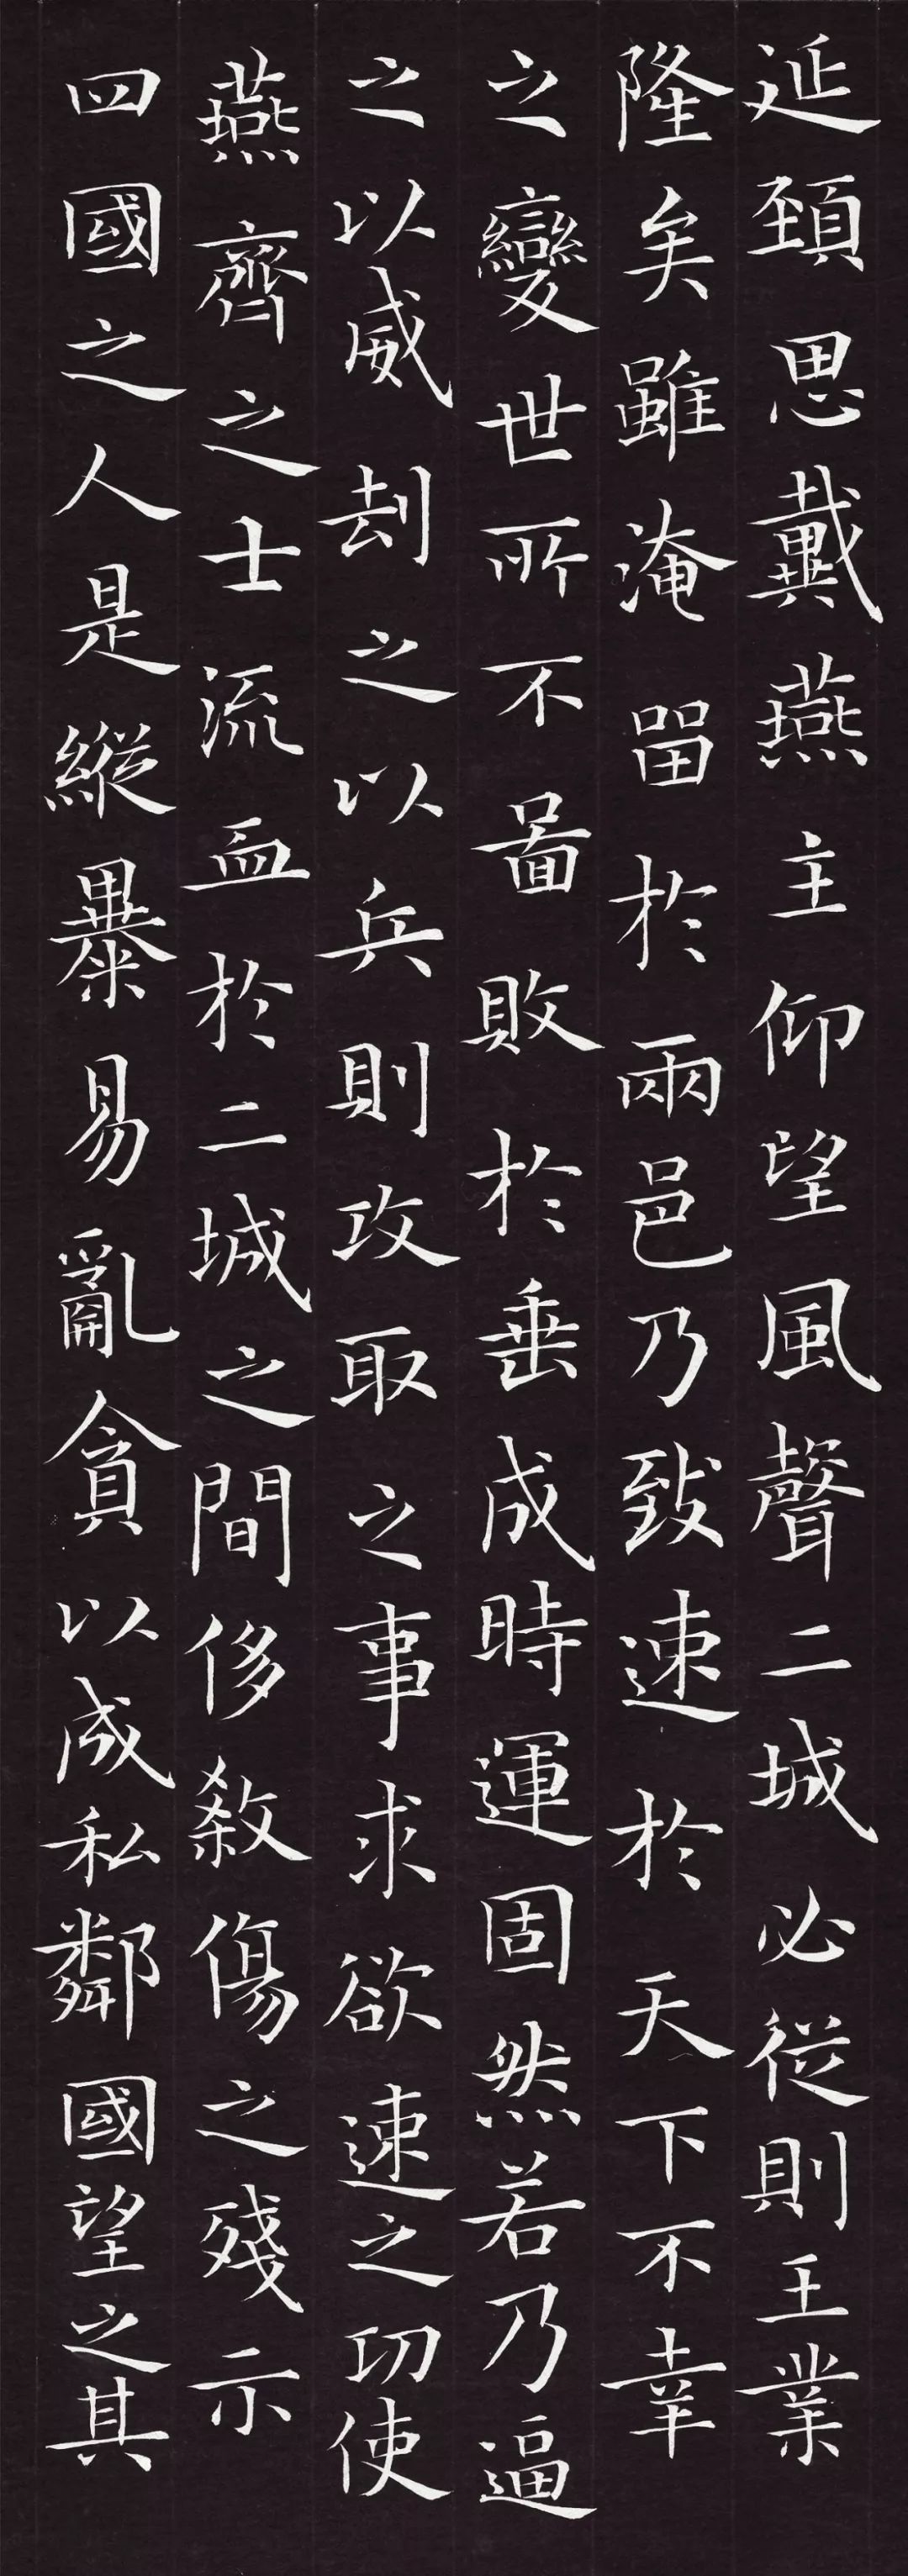 延頚思戴燕主仰望風聲二城必従則王業
隆矣雖淹留於兩邑乃致速於天下不幸
之變世所不啚敗於垂成時運固然若乃逼
之以威刧之以兵則攻取之事求欲速之功使
燕齊之士流血於二城之間侈殺傷之殘示
四國之人是縱暴易亂貪以成私鄰國望之其